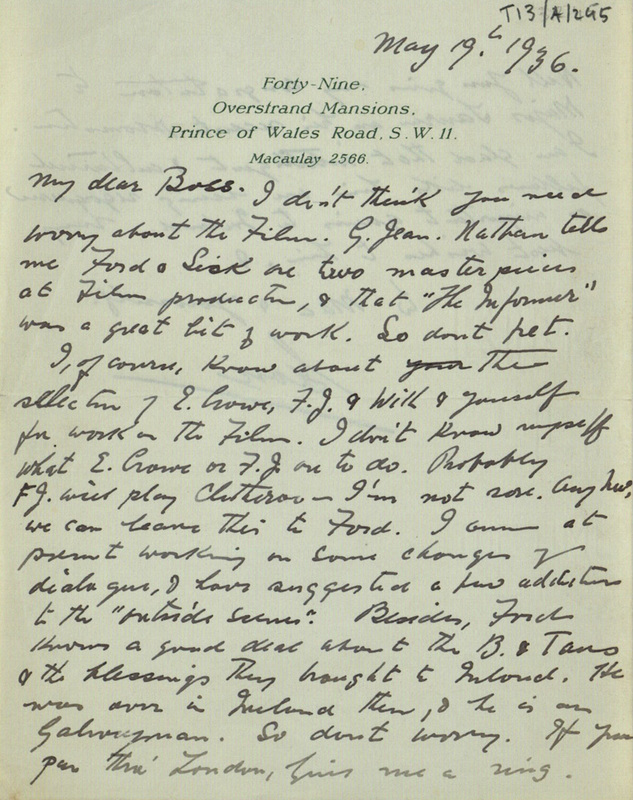 T13/A/295
May 19.th 1936.
Forty-Nine.
Overstrand Mansions.
Prince of Wales Road, S.W. 11.
Macaulay 2566.
My dear Boss. I don't think you need
worry about the Film. G. Jean. Nathan tells
me Ford & Sisk are two masterpieces
at Film production, & that "The Informer"
was a great bit of work. So dont fret.
I, of course, know about your the
selection of E. Crowe, F.J. & Will & yourself
for work on the Film. I don't know myself
what E. Crowe or F.J. are to do. Probably
F.J. will play Clitheroe — I'm not sore. Any how,
we can leave this to Ford. I am at
present working on some changes of
dialogue, & have suggested a few additions
to the "outside scenes". Besides, Ford
knows a good deal about the B. & Tans
& the blessings they brought to Ireland. He
was over in Ireland then, & he is an
Galwayman. So dont worry. If you
pass thro' London, give me a ring.